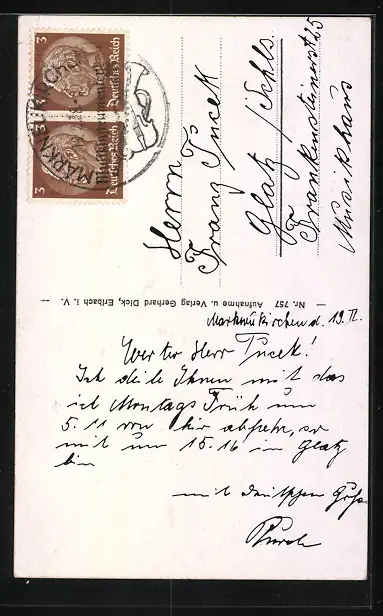 3 Deutsches Reich
3 Deutsches Reich
MARKNEUKIRCHEN
Herrn
Franz Tucek
Glatz / Schls.
Frankensteinerst 25
Musikhaus
Nr. 757 Aufnahme u. Verlag Gerhard Dick, Erlbach i. V.
Markneukirchen d. 19. II.
Werter Herr Tucek!
Ich deile Ihnen mit das
ich Montags Früh um
5.11 von hir abfahre, so
mit um 15.16 in Glatz
bin
mit Deutschen Gruß